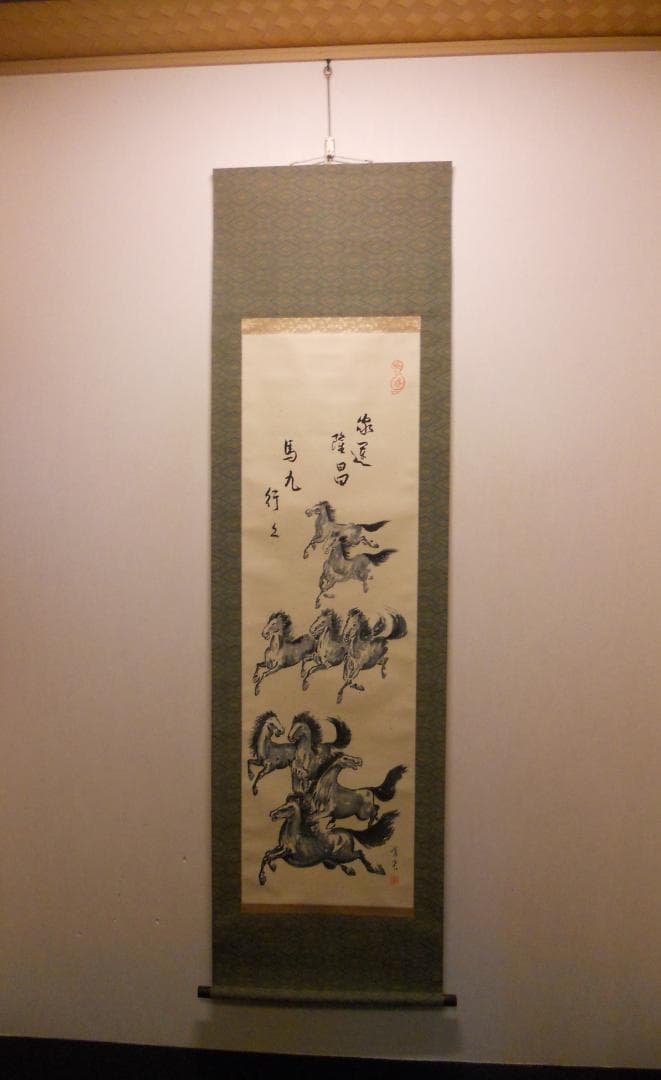 家運
隆昌
馬九
行久